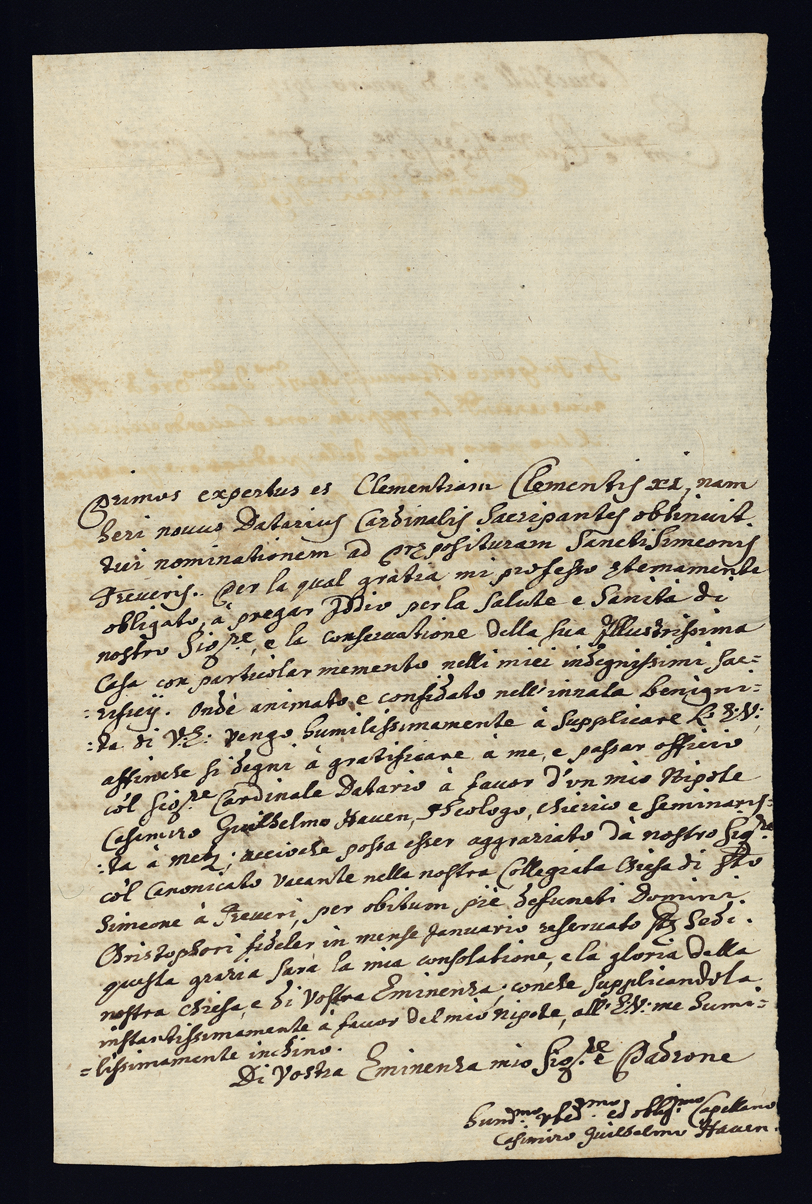 Primus expertus es Clementiam Clementis XI, nam
heri novus Datarius Cardinalis Sacripantes obtinuit
tui nominationem ad præposituram Sancti Simeonis
Treveris. per la qual gratia mi professo eternamente
obligato, à pregar Iddio per la Salute e Sanità di
nostro Sig.re, e la conservatione della sua Illustrissima
Casa con particolar memento nelli miei indegnissimi Sac=
=rificij. Onde animato e confidato nell'innata benigni=
=tà di V.E. vengo humilissimamente à Supplicare L'E.V.
affinche si degni à gratificare à me, e passar officio
col Sig.re Cardinale Datario à favor d'un mio Nipote
Casimiro Guilhelmo Haven, Theologo, chierico e Seminaris=
=ta à Metz; accioche possa esser aggraziato dà nostro Sig.re
col Canonicato vacante nella nostra Collegiata Chiesa di Sto
Simeone à Treveri, per obitum piè defuncti Domini
Christophori fideler in mense Januario reservato Sedi.
questa grazia sarà la mia consolatione, e la gloria della
nostra chiesa, e di Vostra Eminenza; conche supplicandola
instantissimamente à favor del mio Nipote, all'E.V. me humi=
=lissimamente inchino.
Di Vostra Eminenza mio Sig.re è Padrone
hum.mo obed.mo ed oblig.mo Capellano
Casimiro Guilhelmo Haven.